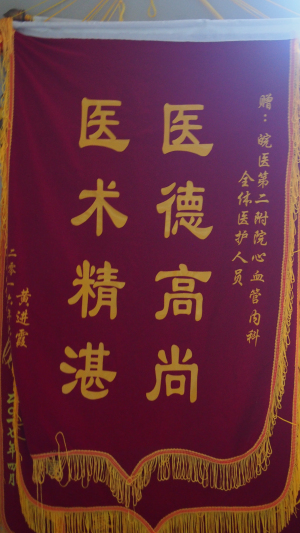 赠：皖医第二附院心血管内科
全体医护人员
医德高尚
医术精湛
黄进霞
二零一六年